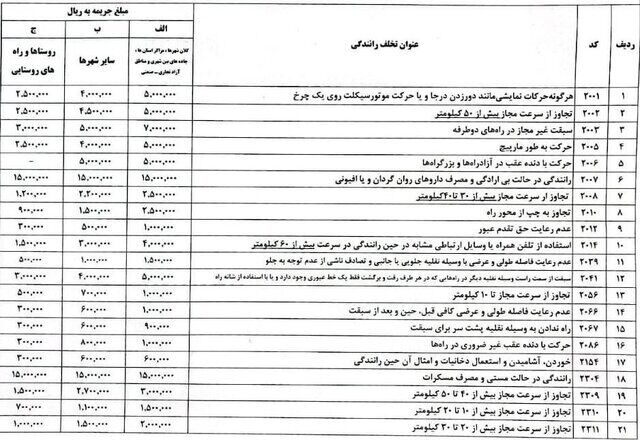 ردیف کد عنوان تخلف رانندگی مبلغ جریمه به ریال
الف ب ج
کلان شهرها ، مراکز استان ها ، جاده های بین شهری و مناطق آزاد تجاری _ صنعتی سایر شهرها روستاها و راه های روستایی
۱ ۲۰۰۱ هرگونه حرکات نمایشی مانند دور زدن درجا و یا حرکت موتورسیکلت روی یک چرخ ۵,۰۰۰,۰۰۰ ۴,۰۰۰,۰۰۰ ۲,۵۰۰,۰۰۰
۲ ۲۰۰۲ تجاوز از سرعت مجاز بیش از ۵۰ کیلومتر ۵,۰۰۰,۰۰۰ ۴,۵۰۰,۰۰۰ ۲,۵۰۰,۰۰۰
۳ ۲۰۰۳ سبقت غیر مجاز در راه‌های دوطرفه ۷,۰۰۰,۰۰۰ ۵,۰۰۰,۰۰۰ ۳,۰۰۰,۰۰۰
۴ ۲۰۰۵ حرکت به طور مارپیچ ۵,۰۰۰,۰۰۰ ۴,۰۰۰,۰۰۰ ۲,۵۰۰,۰۰۰
۵ ۲۰۰۶ حرکت با دنده عقب در آزادراه‌ها و بزرگراه‌ها ۵,۰۰۰,۰۰۰ ۵,۰۰۰,۰۰۰ -
۶ ۲۰۰۷ رانندگی در حالت بی ارادگی و مصرف داروهای روان گردان و یا افیونی ۱۵,۰۰۰,۰۰۰ ۱۵,۰۰۰,۰۰۰ ۱۵,۰۰۰,۰۰۰
۷ ۲۰۰۸ تجاوز از سرعت مجاز بیش از ۳۰ تا ۴۰ کیلومتر ۲,۵۰۰,۰۰۰ ۲,۲۰۰,۰۰۰ ۱,۲۰۰,۰۰۰
۸ ۲۰۱۰ تجاوز به چپ از محور راه ۲,۵۰۰,۰۰۰ ۱,۵۰۰,۰۰۰ ۹۰۰,۰۰۰
۹ ۲۰۱۲ عدم رعایت حق تقدم عبور ۱,۰۰۰,۰۰۰ ۵۰۰,۰۰۰ ۳۰۰,۰۰۰
۱۰ ۲۰۱۴ استفاده از تلفن همراه یا وسایل ارتباطی مشابه در حین رانندگی در سرعت بیش از ۶۰ کیلومتر ۴,۰۰۰,۰۰۰ ۳,۰۰۰,۰۰۰ ۱,۵۰۰,۰۰۰
۱۱ ۲۰۳۹ عدم رعایت فاصله طولی و عرضی با وسیله نقلیه جلویی یا جانبی و تصادف ناشی از عدم توجه به جلو ۱,۵۰۰,۰۰۰ ۱,۰۰۰,۰۰۰ ۵۰۰,۰۰۰
۱۲ ۲۰۴۱ سبقت از سمت راست وسیله نقلیه دیگر در راه‌هایی که در هر طرف رفت و برگشت فقط یک خط عبوری وجود دارد و یا با استفاده از شانه راه ۵,۰۰۰,۰۰۰ ۴,۰۰۰,۰۰۰ ۳,۰۰۰,۰۰۰
۱۳ ۲۰۵۶ تجاوز از سرعت مجاز تا ۱۰ کیلومتر ۱,۰۰۰,۰۰۰ ۷۰۰,۰۰۰ ۵۰۰,۰۰۰
۱۴ ۲۰۶۶ عدم رعایت فاصله طولی و عرضی کافی قبل، حین و بعد از سبقت ۱,۰۰۰,۰۰۰ ۶۰۰,۰۰۰ ۳۰۰,۰۰۰
۱۵ ۲۰۶۷ راه ندادن به وسیله نقلیه پشت سر برای سبقت ۹۰۰,۰۰۰ ۶۰۰,۰۰۰ ۳۰۰,۰۰۰
۱۶ ۲۰۸۶ حرکت با دنده عقب غیر ضروری در راه‌ها ۱,۰۰۰,۰۰۰ ۸۰۰,۰۰۰ ۳۰۰,۰۰۰
۱۷ ۲۱۵۴ خوردن، آشامیدن و استعمال دخانیات و امثال آن حین رانندگی ۶۰۰,۰۰۰ ۶۰۰,۰۰۰ ۳۰۰,۰۰۰
۱۸ ۲۳۰۴ رانندگی در حالت مستی و مصرف مسکرات ۱۵,۰۰۰,۰۰۰ ۱۵,۰۰۰,۰۰۰ ۱۵,۰۰۰,۰۰۰
۱۹ ۲۳۰۹ تجاوز از سرعت مجاز بیش از ۴۰ تا ۵۰ کیلومتر ۳,۰۰۰,۰۰۰ ۲,۷۰۰,۰۰۰ ۱,۵۰۰,۰۰۰
۲۰ ۲۳۱۰ تجاوز از سرعت مجاز بیش از ۱۰ تا ۲۰ کیلومتر ۱,۵۰۰,۰۰۰ ۱,۱۰۰,۰۰۰ ۷۰۰,۰۰۰
۲۱ ۲۳۱۱ تجاوز از سرعت مجاز بیش از ۲۰ تا ۳۰ کیلومتر ۲,۰۰۰,۰۰۰ ۱,۵۰۰,۰۰۰ ۱,۰۰۰,۰۰۰